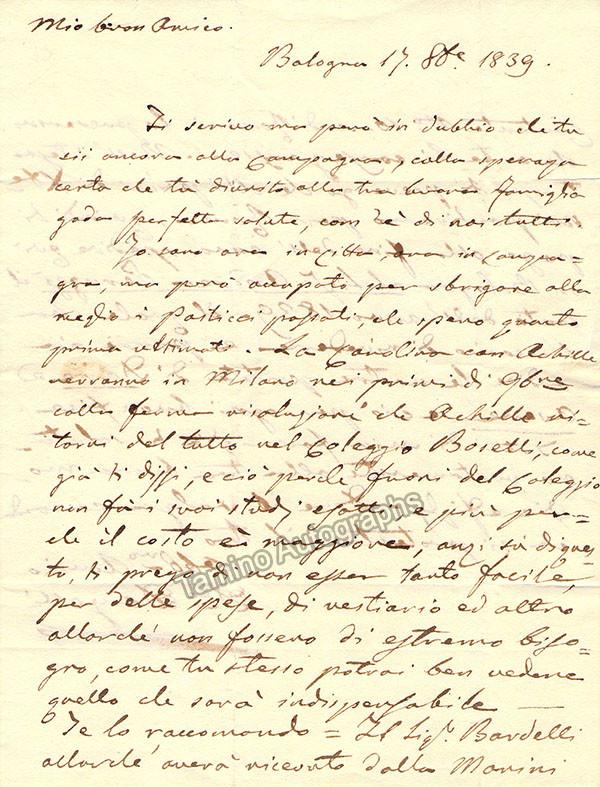 Mio buon Amico.
Bologna 17. 8bre 1839.
Ti scrivo ma però in dubbio che tu
sii ancora alla Campagna, colla speranza
certa che tu diunito alla tua buona famiglia
goda perfetta salute, com'è di noi tutti.
Io sono ora in Città, ora in campa=
gna, ma però occupato per sbrigare alla
meglio i pasticci passati, che spero quanto
prima ultimati. La Carolina con Achille
verranno in Milano nei primi di 9bre
colla ferma risoluzione che Achille ri=
torni del tutto nel Coleggio Boselli, come
già ti dissi, e ciò perche fuori del Coleggio
non fà i suoi studj esatti, e più per=
che il costo è maggiore, anzi sù di ques=
to, ti prego di non esser tanto facile,
per delle spese, di vestiario ed altro
allorché non fossero di estremo biso=
gno, come tu stesso potrai ben vedere
quello che sarà indispensabile —
Te lo raccomando = Il Sigr. Bardelli
allorché averà ricevuto dalla Manini
Tamino Autographs